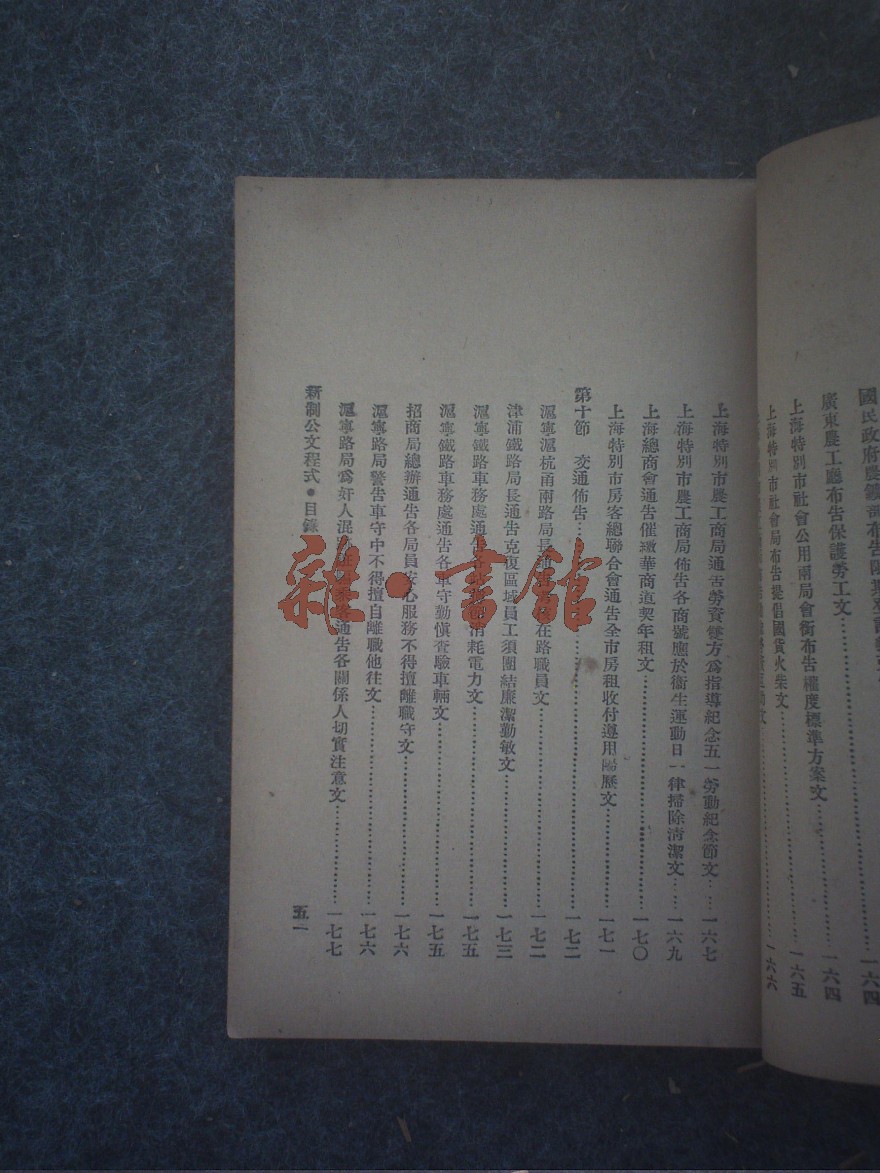 國民政府農鑛部布告
一六四
廣東農工廳布告保護勞工文…………一六四
上海特別市社會公用兩局會銜布告權度標準方案文……一六五
上海特別市社會局布告提倡國貨火柴文…………一六六
上海特別市農工商局通告勞資雙方爲指導紀念五一勞動紀念節文……一六七
上海特別市農工商局佈告各商號應於衞生運動日一律掃除清潔文……一六九
上海總商會通告催繳華商道契年租文…………一七〇
上海特別市房客總聯合會通告全市房租收付遵用陽歷文…………一七一
第十節 交通佈告…………一七二
滬寧滬杭甬兩路局長通 在路職員文…………一七二
津浦鐵路局長通告克復區域員工須團結廉潔勤敏文…………一七三
滬寧鐵路車務處通告各 消耗電力文…………一七五
滬寧鐵路車務處通告各車守勤愼查驗車輛文…………一七五
招商局總辦通告各局員安心服務不得擅離職守文…………一七六
滬寧路局警告車守中不得擅自離職他往文…………一七六
滬寧路局爲奸人混 通告各關係人切實注意文…………一七七
新制公文程式•目錄
五二
雜·書館